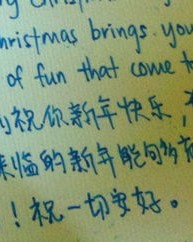 Christmas
hristmas brings you
of fun that come t
祝你新年快乐，
来临的新年能
！祝一切安好。